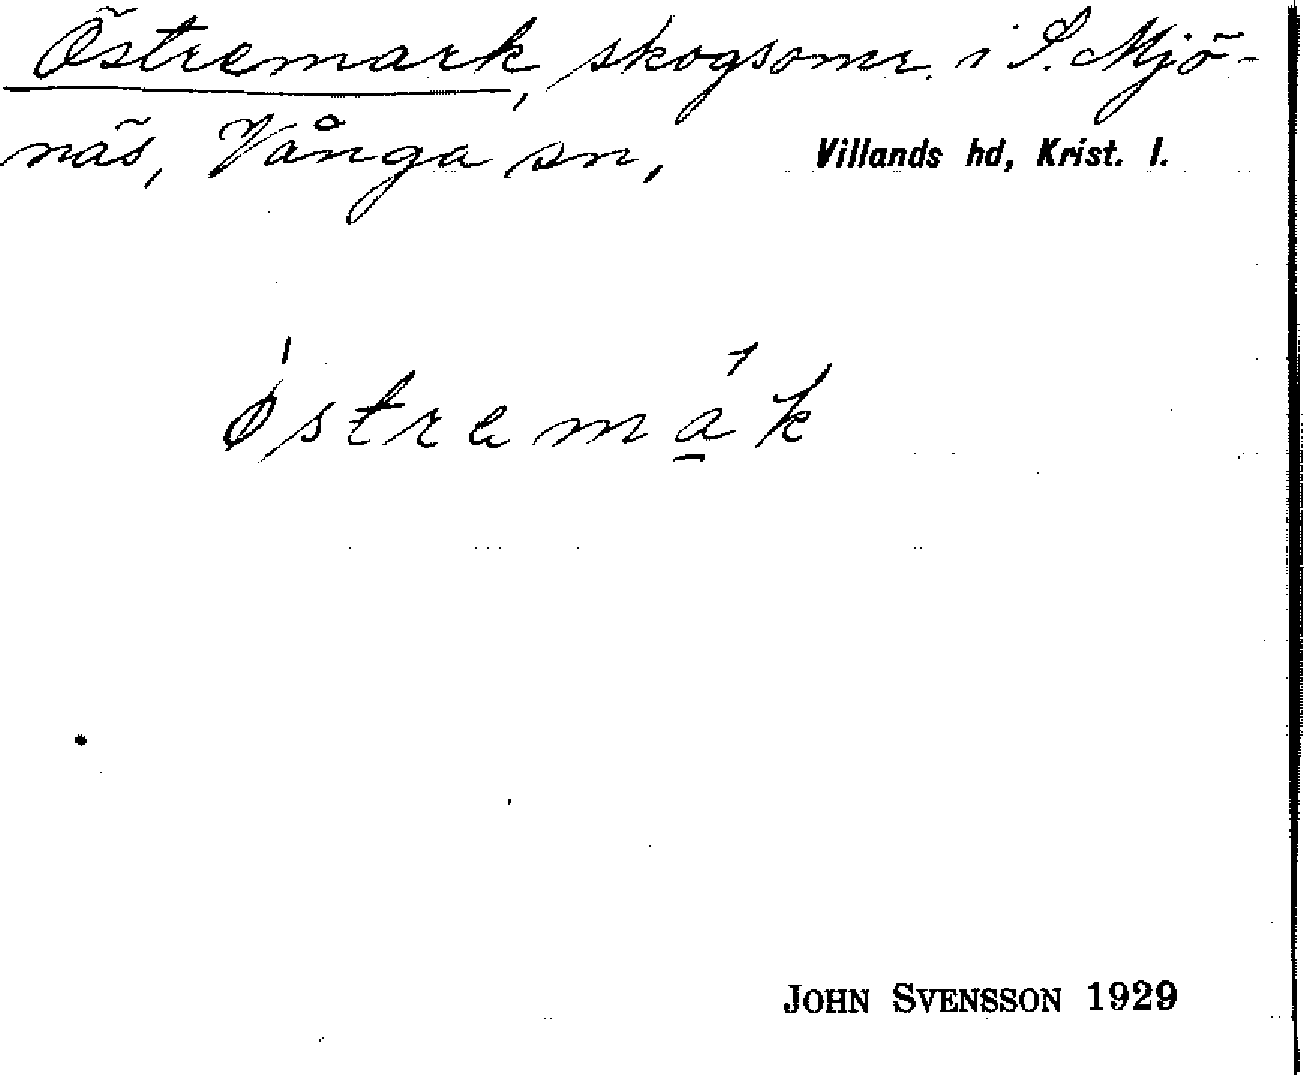 Östremark, skogsomr. i S. Mjö-
näs, Vånga sn, Villands hd, Krist. l.
ǿstremá̱k
JOHN SVENSSON 1929